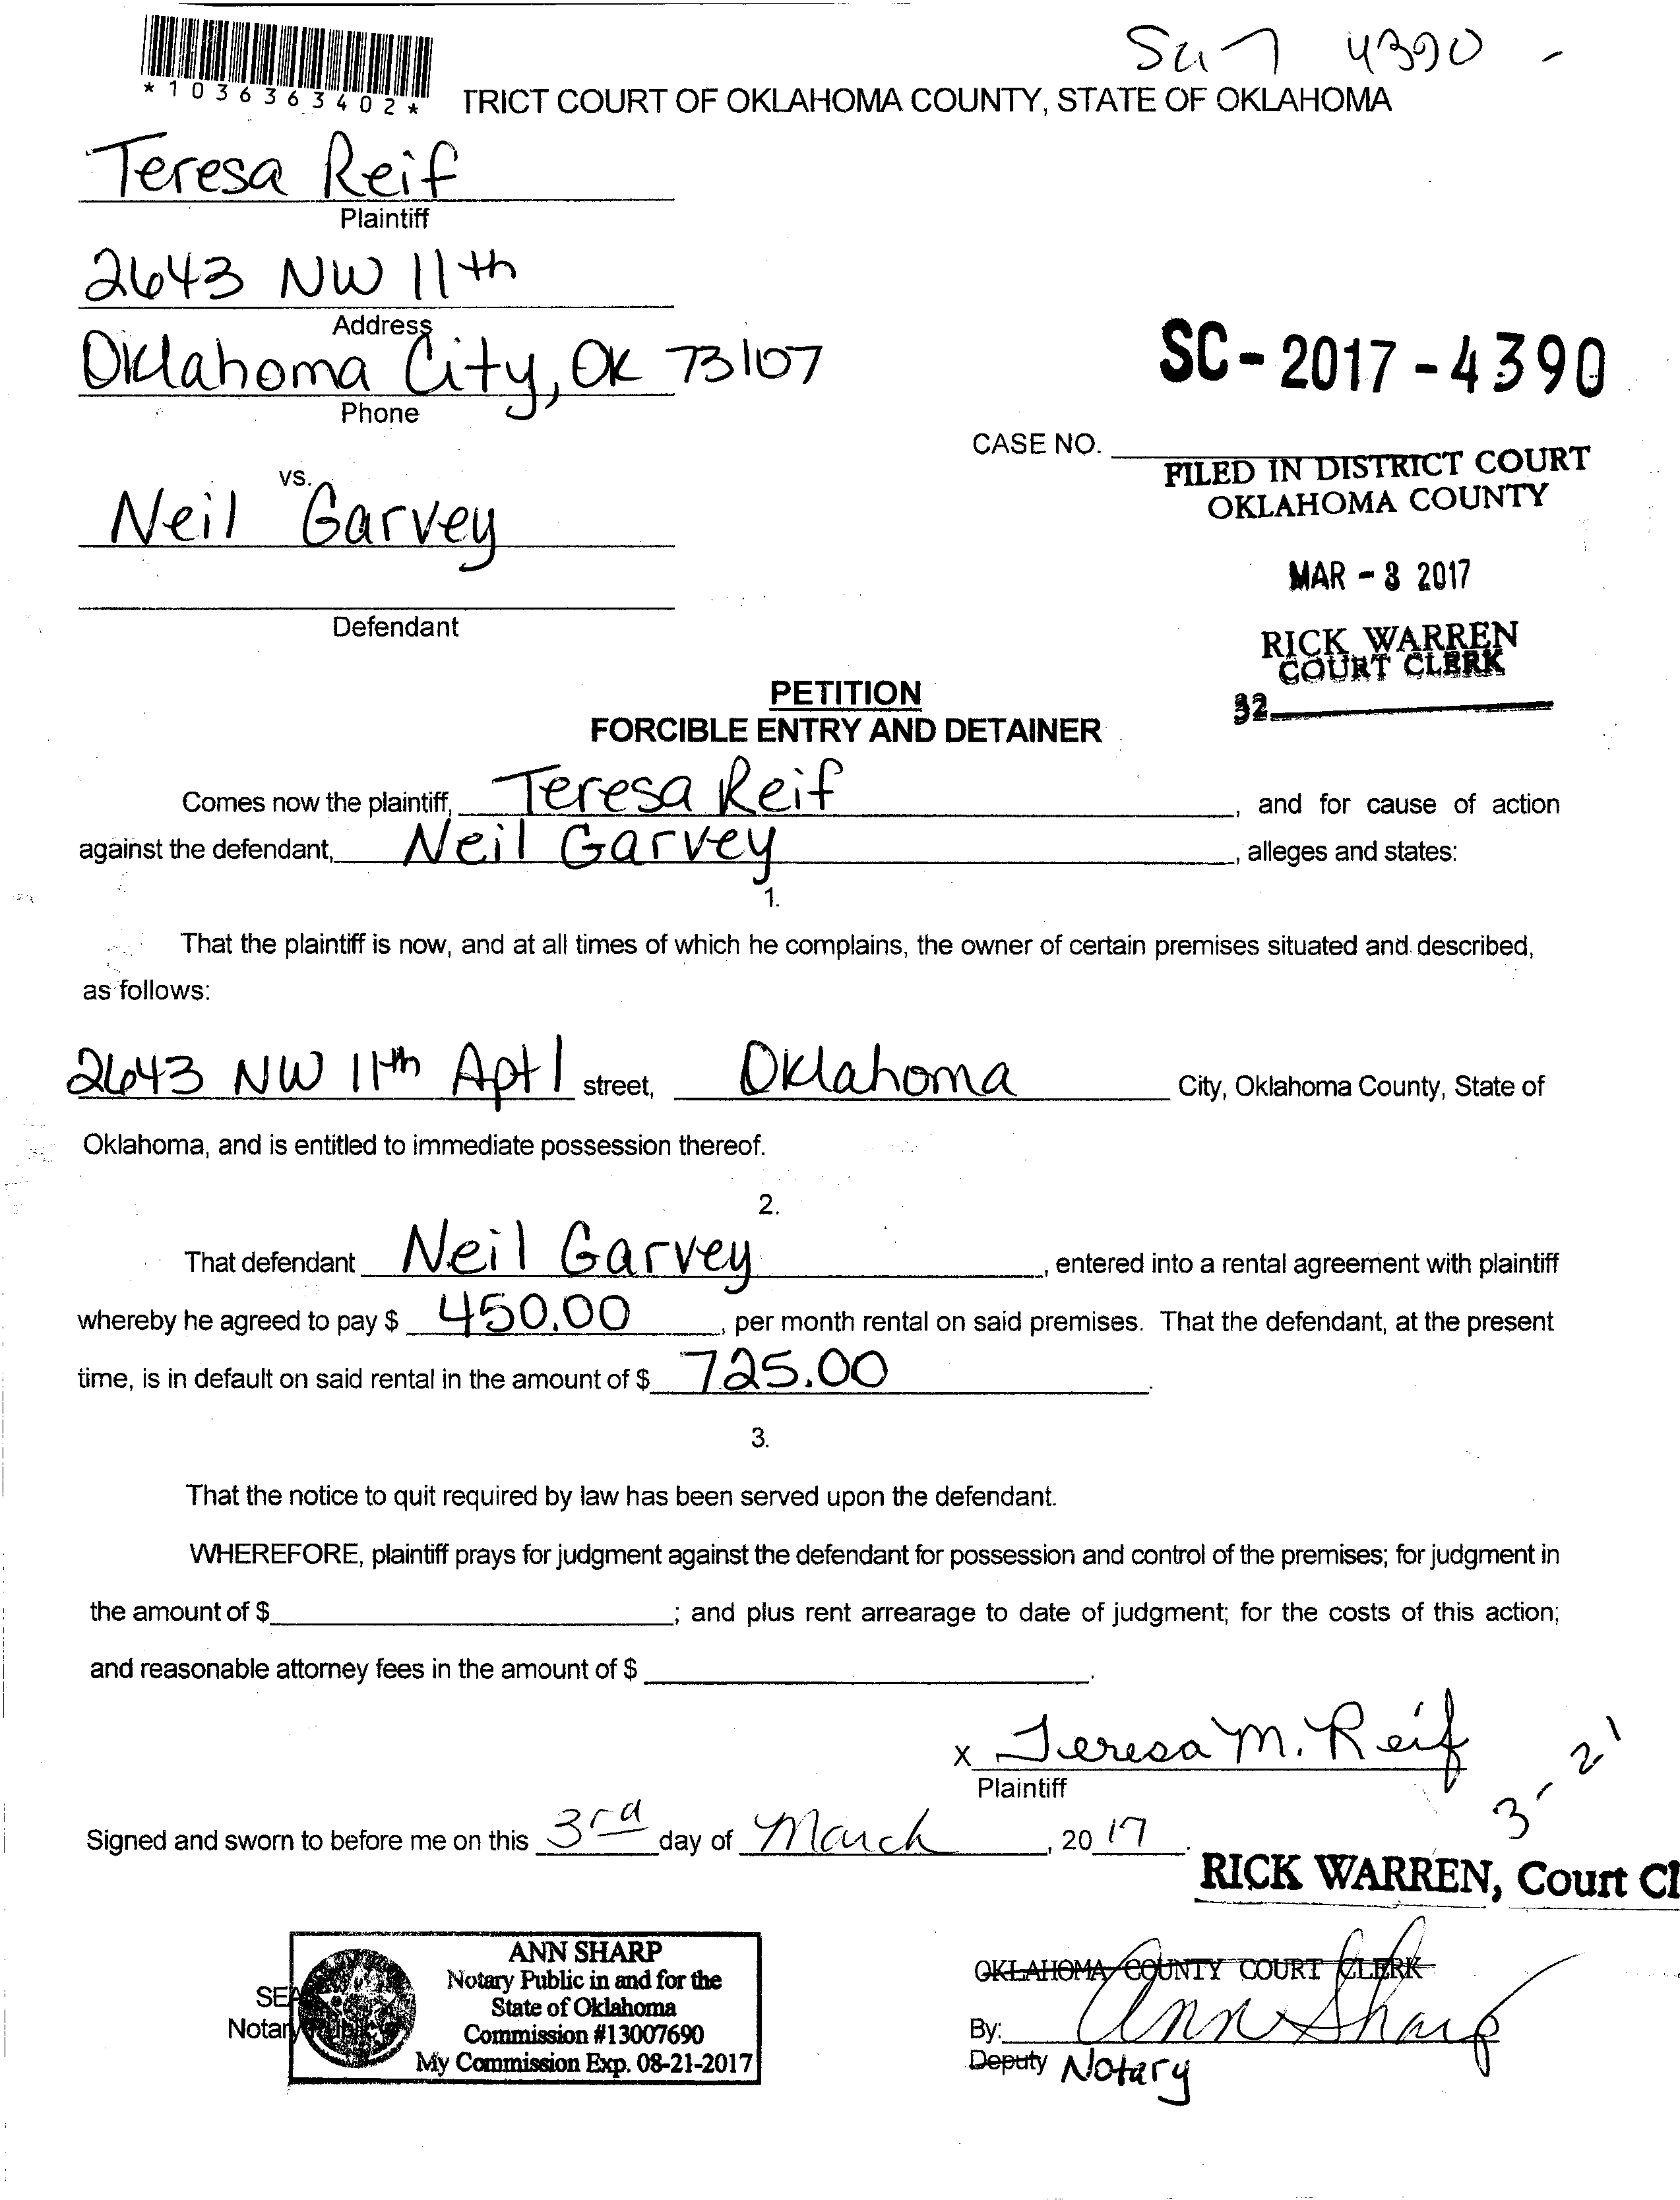 4390 -
*1036363402*
TRICT COURT OF OKLAHOMA COUNTY, STATE OF OKLAHOMA
Teresa Reif
Plaintiff
2643 NW 11th
Address
Oklahoma City, OK 73107
Phone
SC-2017-4390
CASE NO.
FILED IN DISTRICT COURT
OKLAHOMA COUNTY
vs.
Neil Garvey
MAR - 3 2017
Defendant
RICK WARREN
COURT CLERK
32
PETITION
FORCIBLE ENTRY AND DETAINER
Comes now the plaintiff, Teresa Reif, and for cause of action
against the defendant, Neil Garvey, alleges and states:
1.
That the plaintiff is now, and at all times of which he complains, the owner of certain premises situated and described,
as follows:
2643 NW 11th Apt 1 street, Oklahoma City, Oklahoma County, State of
Oklahoma, and is entitled to immediate possession thereof.
2.
That defendant Neil Garvey, entered into a rental agreement with plaintiff
whereby he agreed to pay $ 450.00, per month rental on said premises. That the defendant, at the present
time, is in default on said rental in the amount of $ 725.00.
3.
That the notice to quit required by law has been served upon the defendant.
WHEREFORE, plaintiff prays for judgment against the defendant for possession and control of the premises; for judgment in
the amount of $ ; and plus rent arrearage to date of judgment; for the costs of this action;
and reasonable attorney fees in the amount of $ .
x Teresa M. Reif
Plaintiff
3-21
Signed and sworn to before me on this 3rd day of March, 2017.
RICK WARREN, Court Cl
ANN SHARP
Notary Public in and for the
State of Oklahoma
Commission #13007690
My Commission Exp. 08-21-2017
SEA
Notary Public
OKLAHOMA COUNTY COURT CLERK
By: Ann Sharp
Deputy Notary